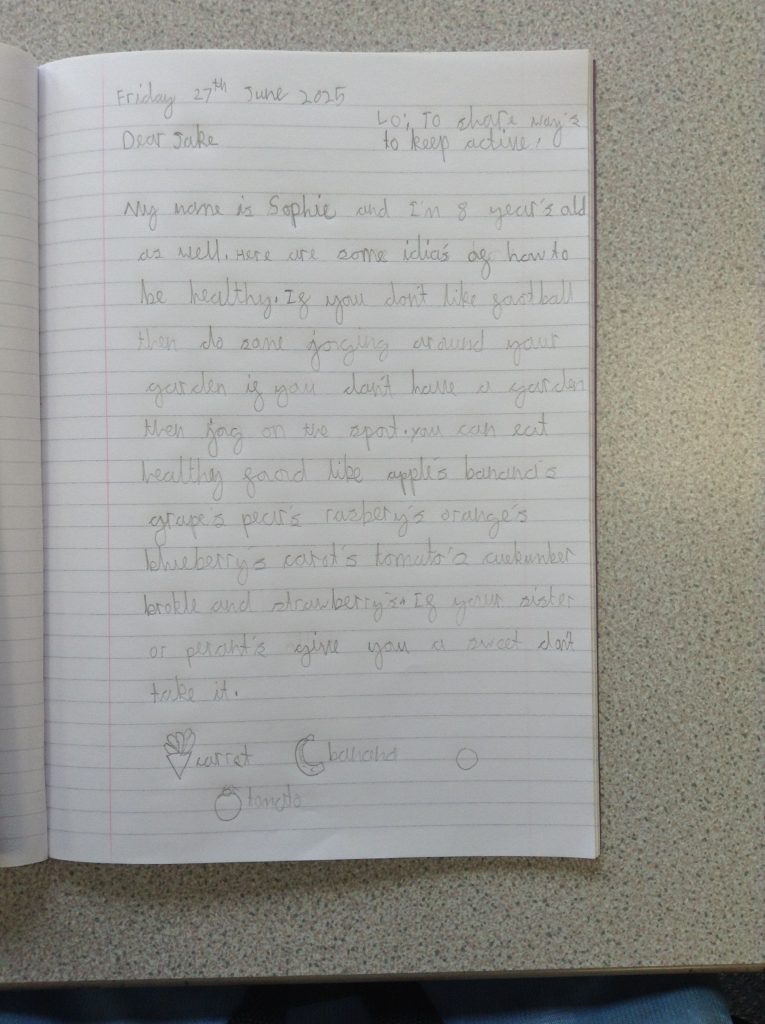 Friday 27th June 2025
LO: To share way's
to keep active.
Dear Jake
My name is Sophie and I'm 8 year's old
as well. Here are some idia's of how to
be healthy. If you don't like football
then do some jorging around your
garden if you don't have a garden
then jog on the sport. you can eat
healthy food like apple's banana's
grape's pear's razbery's orange's
blueberry's carot's tomato's cuekumber
brokle and strawberry's. If your sister
or perant's give you a sweet don't
take it.
carrot banana
tomato